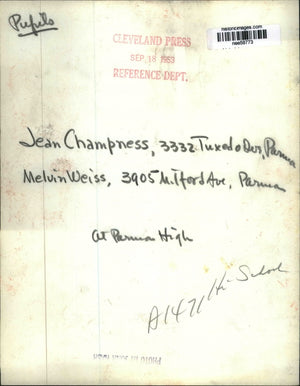 Pupils
historicimages.com
nee59773
CLEVELAND PRESS
SEP 18 1953
REFERENCE DEPT.
Jean Champness, 3332 Tuxedo Ave, Parma
Melvin Weiss, 3905 Milford Ave, Parma
At Parma High
A1471 Hi-School